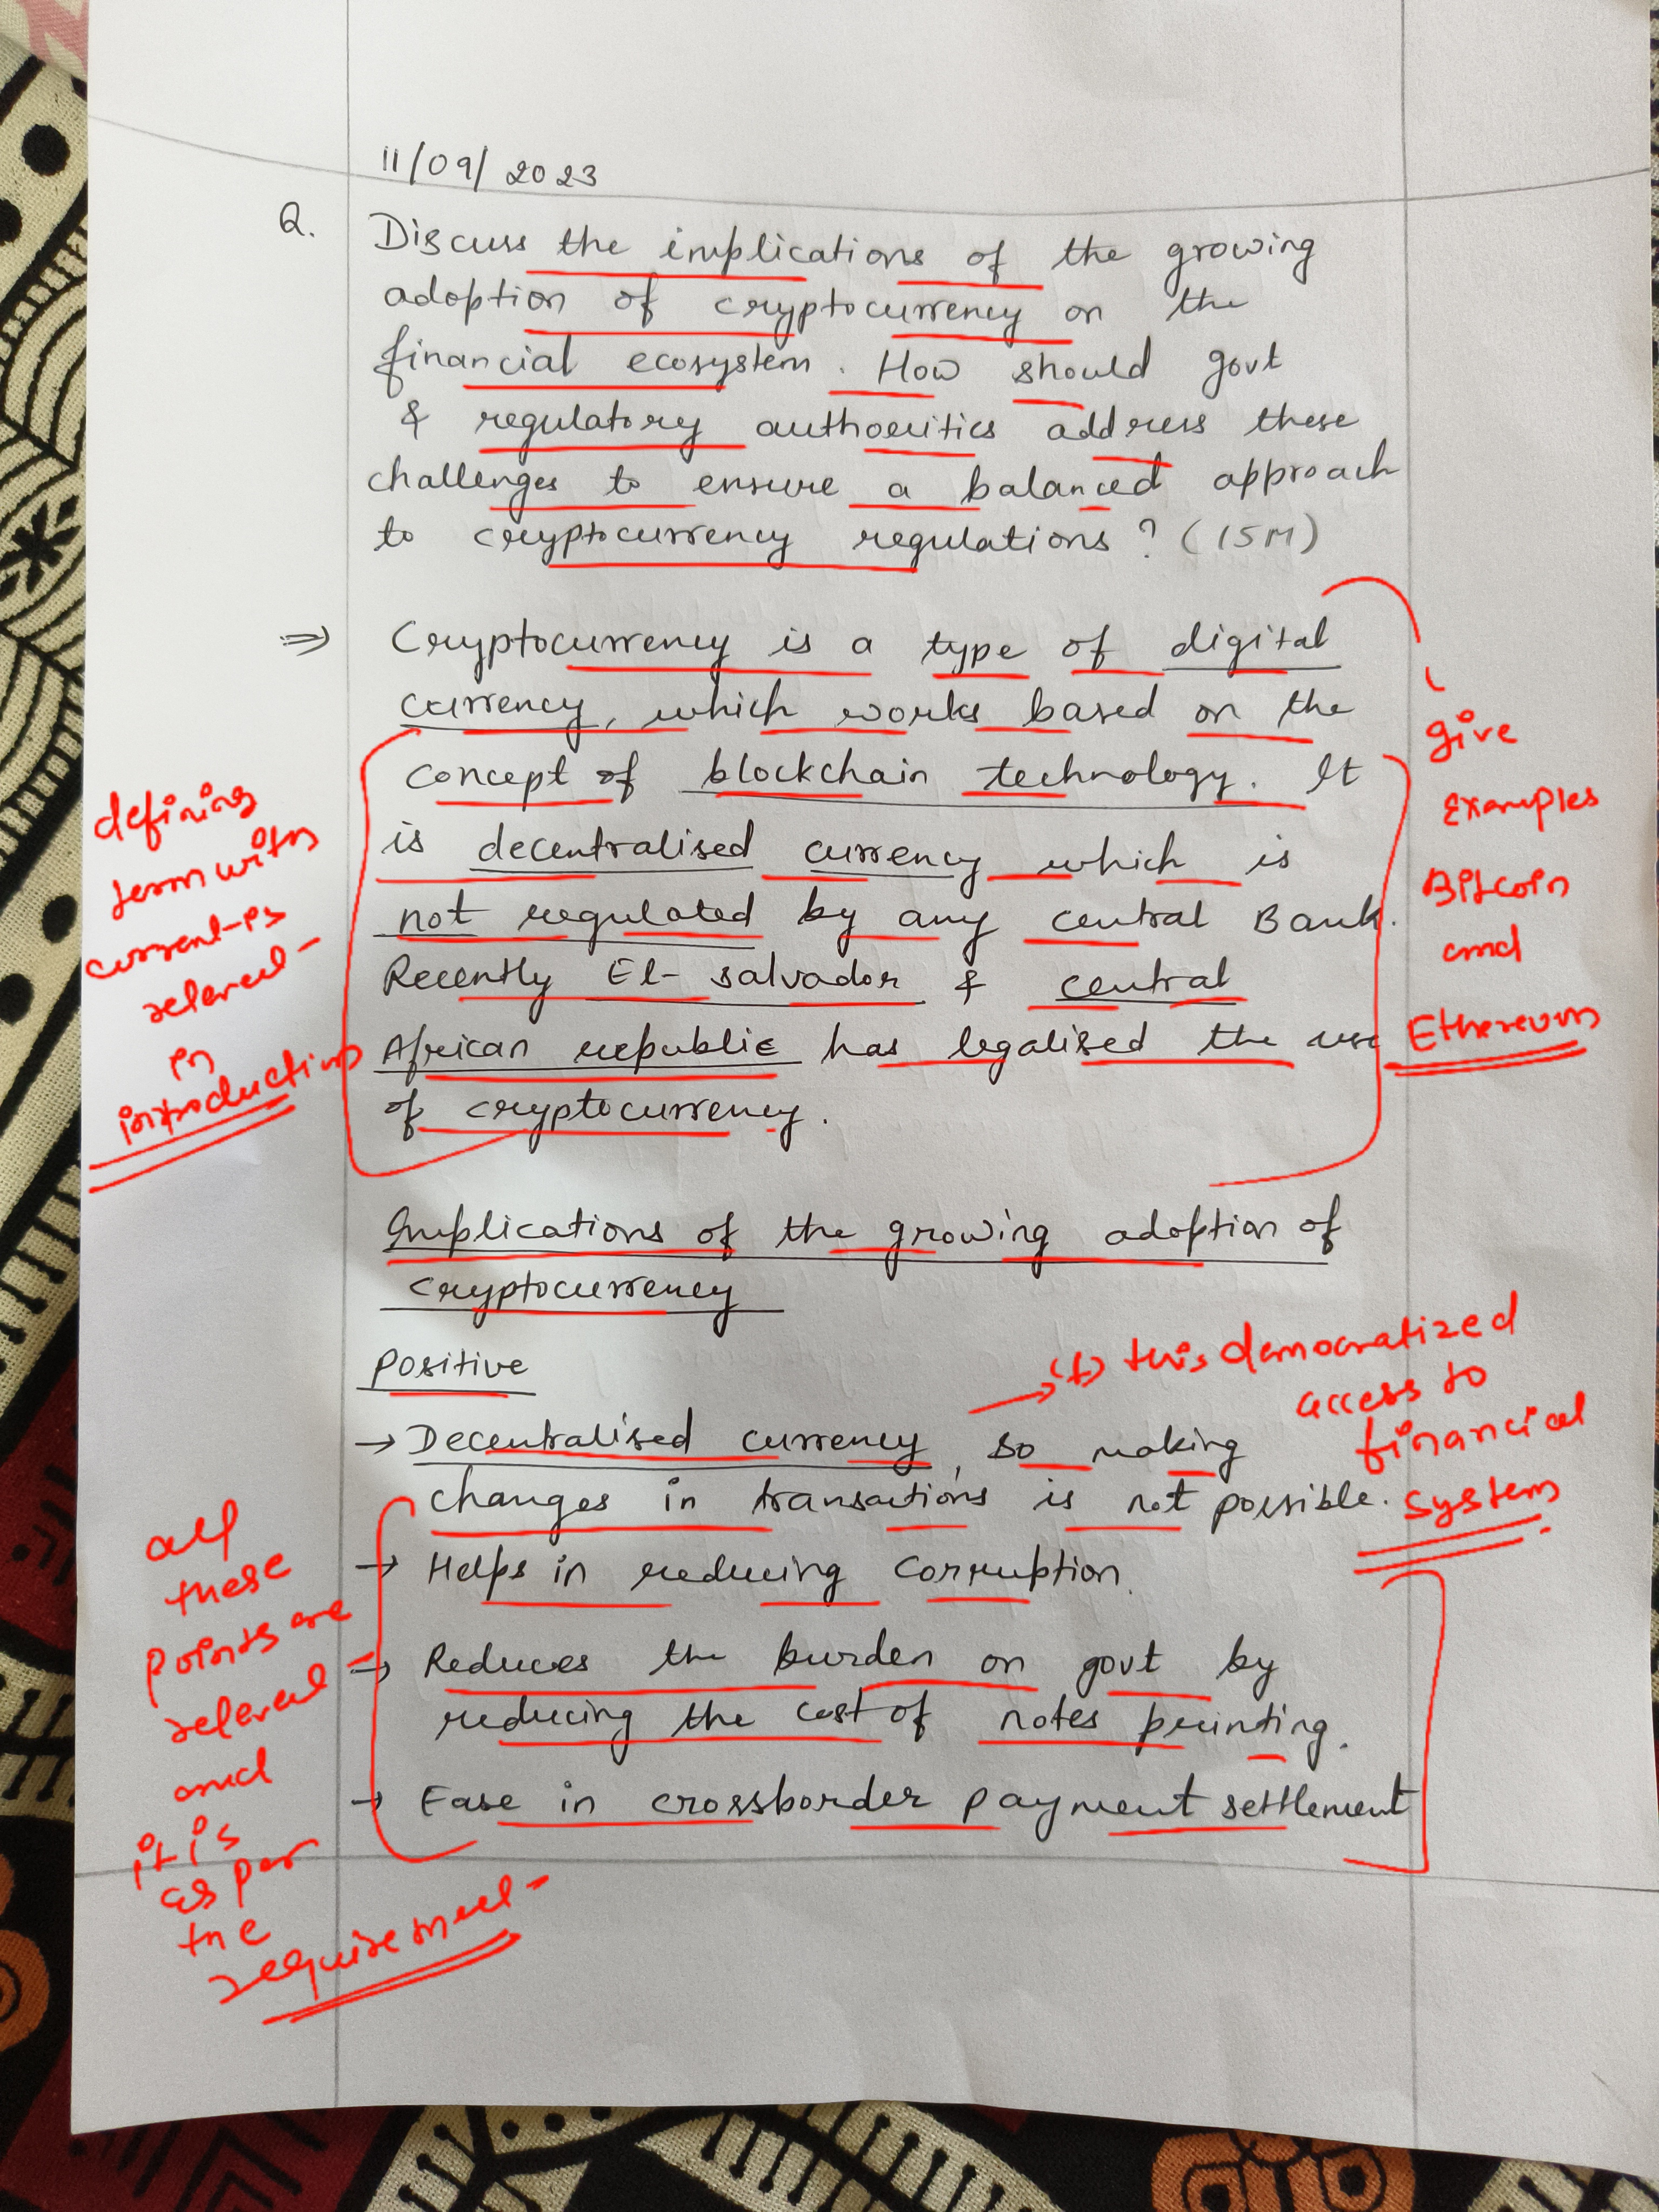 11/09/2023
Q. Discuss the implications of the growing
adoption of cryptocurrency on the
financial ecosystem. How should govt
& regulatory authorities address these
challenges to ensure a balanced approach
to cryptocurrency regulations? (15M)
⇒ Cryptocurrency is a type of digital
currency, which works based on the
concept of blockchain technology. It
is decentralised currency which is
not regulated by any central Bank.
Recently El-salvador & central
African republic has legalised the use
of cryptocurrency.
defining
term with
current is
relevel-
in
introduction
give
examples
Bitcoin
and
Ethereum
Implications of the growing adoption of
cryptocurrency
Positive
→ Decentralised currency, so making
changes in transactions is not possible.
→ Helps in reducing Corruption.
→ Reduces the burden on govt by
reducing the cost of notes printing.
→ Ease in crossborder payment settlement
→ (t) this democratized
access to
financial
system
all
these
points are
relevel-
and
it is
as per
the
requiremeel-